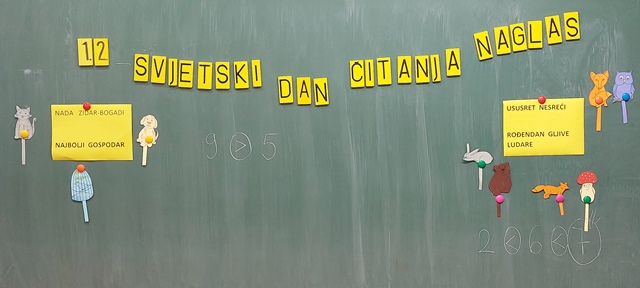 1.2 SVJETSKI DAN CITANJA NAGLAS
NADA ZIDAR-BOGADI
NAJBOLJI GOSPODAR
USUSRET NESREĆI
ROĐENDAN GLJIVE
LUDARE
9 > 5
2 < 6 <